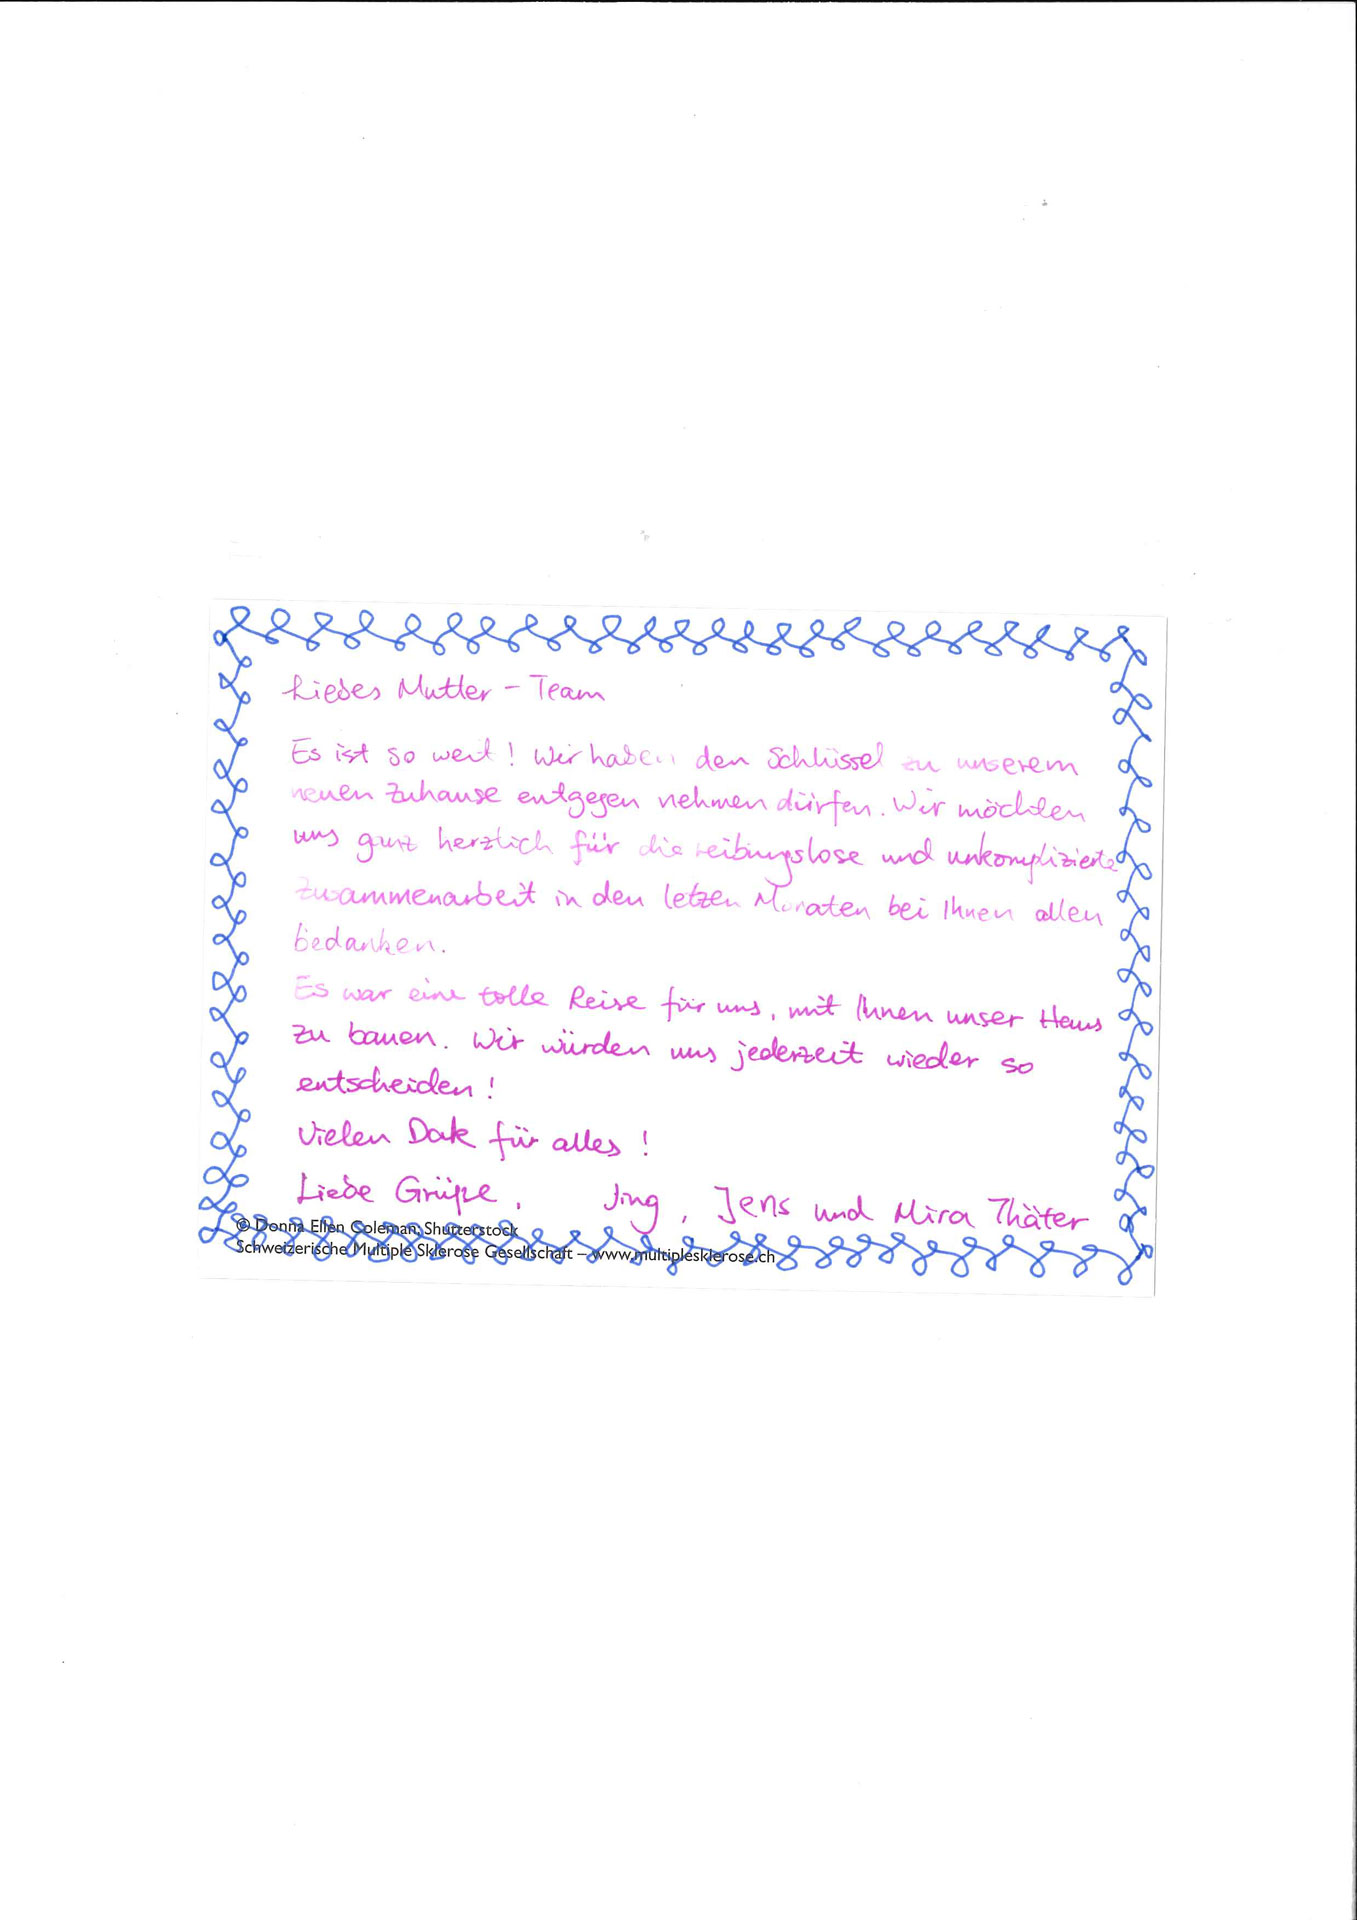 Liebes Mutler - Team
Es ist so weit! Wir haben den Schlüssel zu unserem
neuen Zuhause entgegen nehmen dürfen. Wir möchten
uns ganz herzlich für die reibungslose und unkomplizierte
Zusammenarbeit in den letzen Monaten bei Ihnen allen
bedanken.
Es war eine tolle Reise für uns, mit Ihnen unser Haus
zu bauen. Wir würden uns jederzeit wieder so
entscheiden!
Vielen Dak für alles!
Liebe Grüße, Jing, Jens und Mira Thäter
© Donna Ellen Coleman, Shutterstock
Schweizerische Multiple Sklerose Gesellschaft – www.multiplesklerose.ch